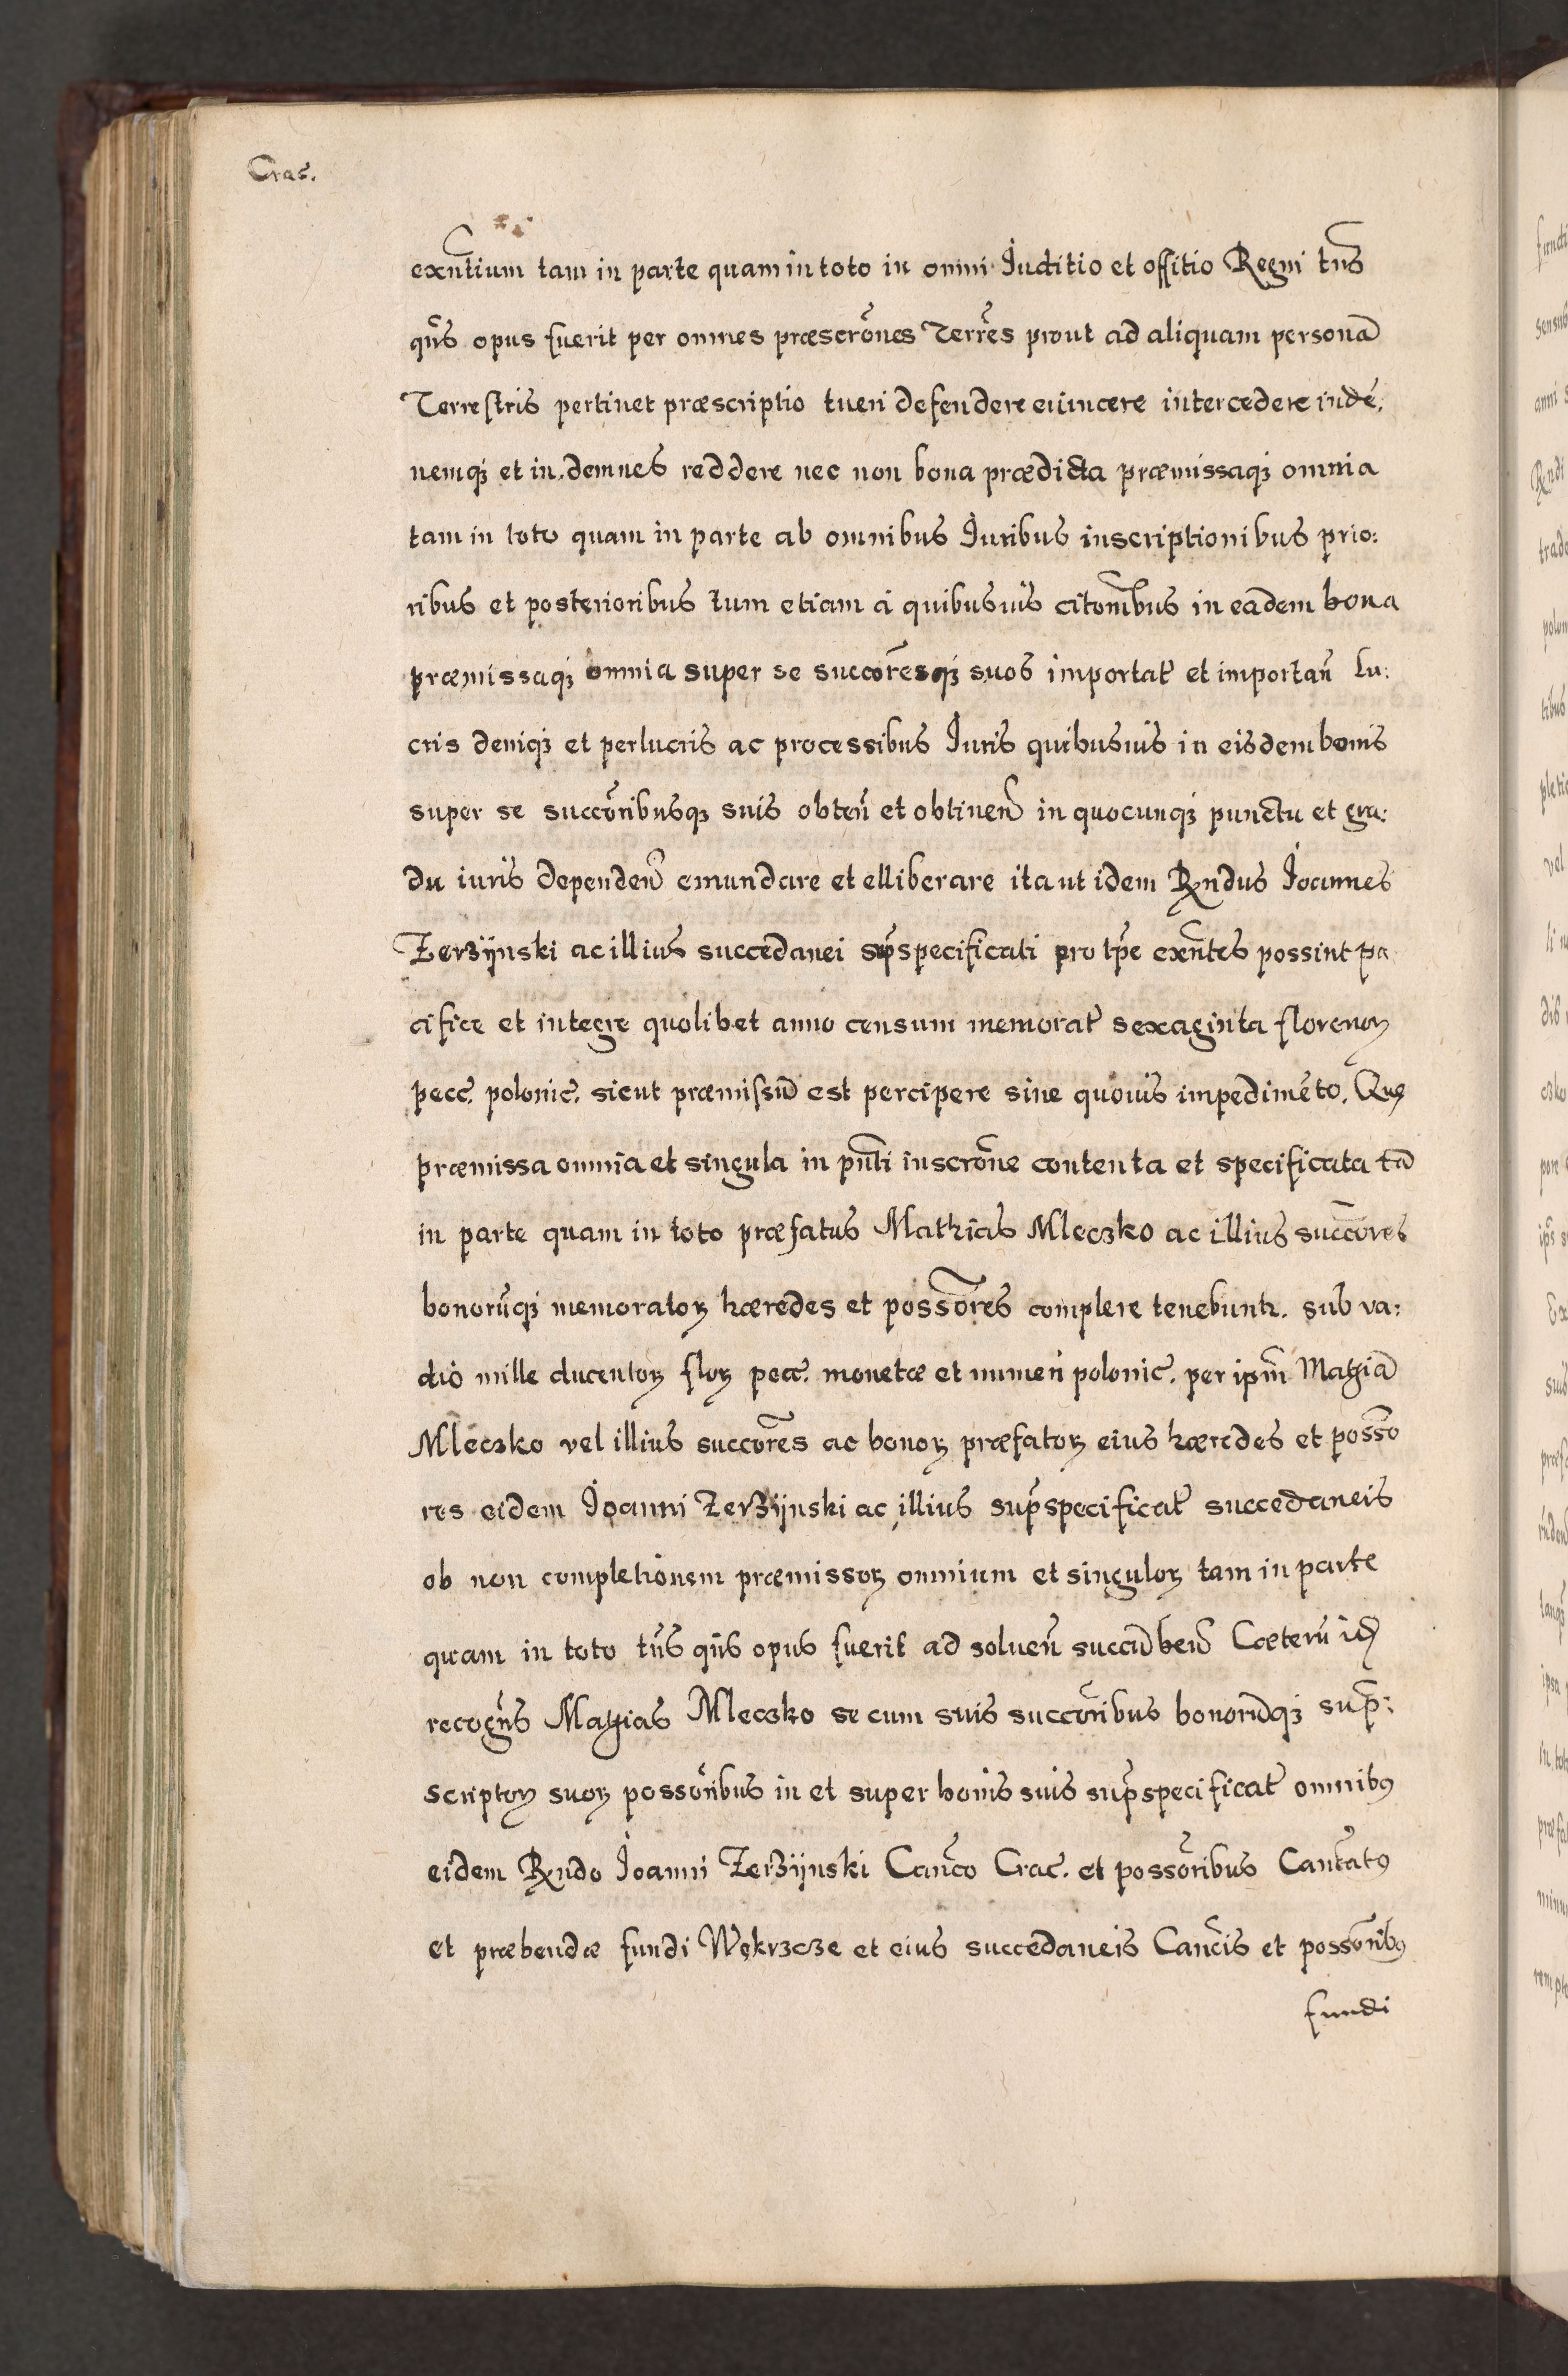 Crac.
exñtium tam in parte quam in toto in omni Iuditio et offitio Regni tñs
qñs opus fuerit per omnes præscrōnes Terrēs prout ad aliquam personā
Terrestris pertinet præscriptio tueri defendere euincere intercedere indē,
nemqȝ et in,demnes reddere nec non bona prædicta præmissaqȝ omnia
tam in toto quam in parte ab omnibus Iuribus inscriptionibus prio:
ribus et posterioribus tum etiam a quibusuis citōnibus in eadem bona
præmissaqȝ omnia super se succōresqȝ suos importat̃ et importañ lu:
cris deniqȝ et perlucris ac processibus Iuris quibusuis in eisdem bonis
super se succōribusqȝ suis obteñ et obtineñ in quocunqȝ punctu et gra:
du iuris dependeñ emundare et elliberare ita ut idem Rñdus Ioannes
Zerzÿnski ac illius succedanei sup̃specificati pro tp̃e exñtes possint pa
cifice et integre quolibet anno censum memorat̃ sexaginta florenoꝝ
pecc̃. polonic̃. sicut præmissū est percipere sine quouis impedimēto. Quę
præmissa omnia et singula in pñti inscrōne contenta et specificata tā
in parte quam in toto præfatus Mathias Mleczko ac illius succōres
bonorūqȝ memoratoꝝ hæredes et possōres complere tenebuntr. sub va:
dio mille ducentoꝝ floꝝ pecc̃. monetæ et numeri polonic̃. per ipm̃ Mathiā
Mleczko vel illius succōres ac bonoꝝ præfatoꝝ eius hæredes et posso
res eidem Ioanni Zerzÿnski ac illius sup̃specificat̃ succedaneis
ob non completionem præmissoꝝ omnium et singuloꝝ tam in parte
quam in toto tñs qñs opus fuerit ad solueñ succūbeñ Cæterū idꝫ
recogñs Mathias Mleczko se cum suis succōribus bonorūqȝ sup̃:
scriptoꝝ suoꝝ possōribus in et super bonis suis sup̃specificat̃ omnibꝰ
eidem Rñdo Ioanni Zerzÿnski Canc̃o Crac̃. et possōribus Cant̃atꝰ
et præbendæ fundi Wękrzcze et eius succedaneis Canc̃is et possōribꝰ
fundi